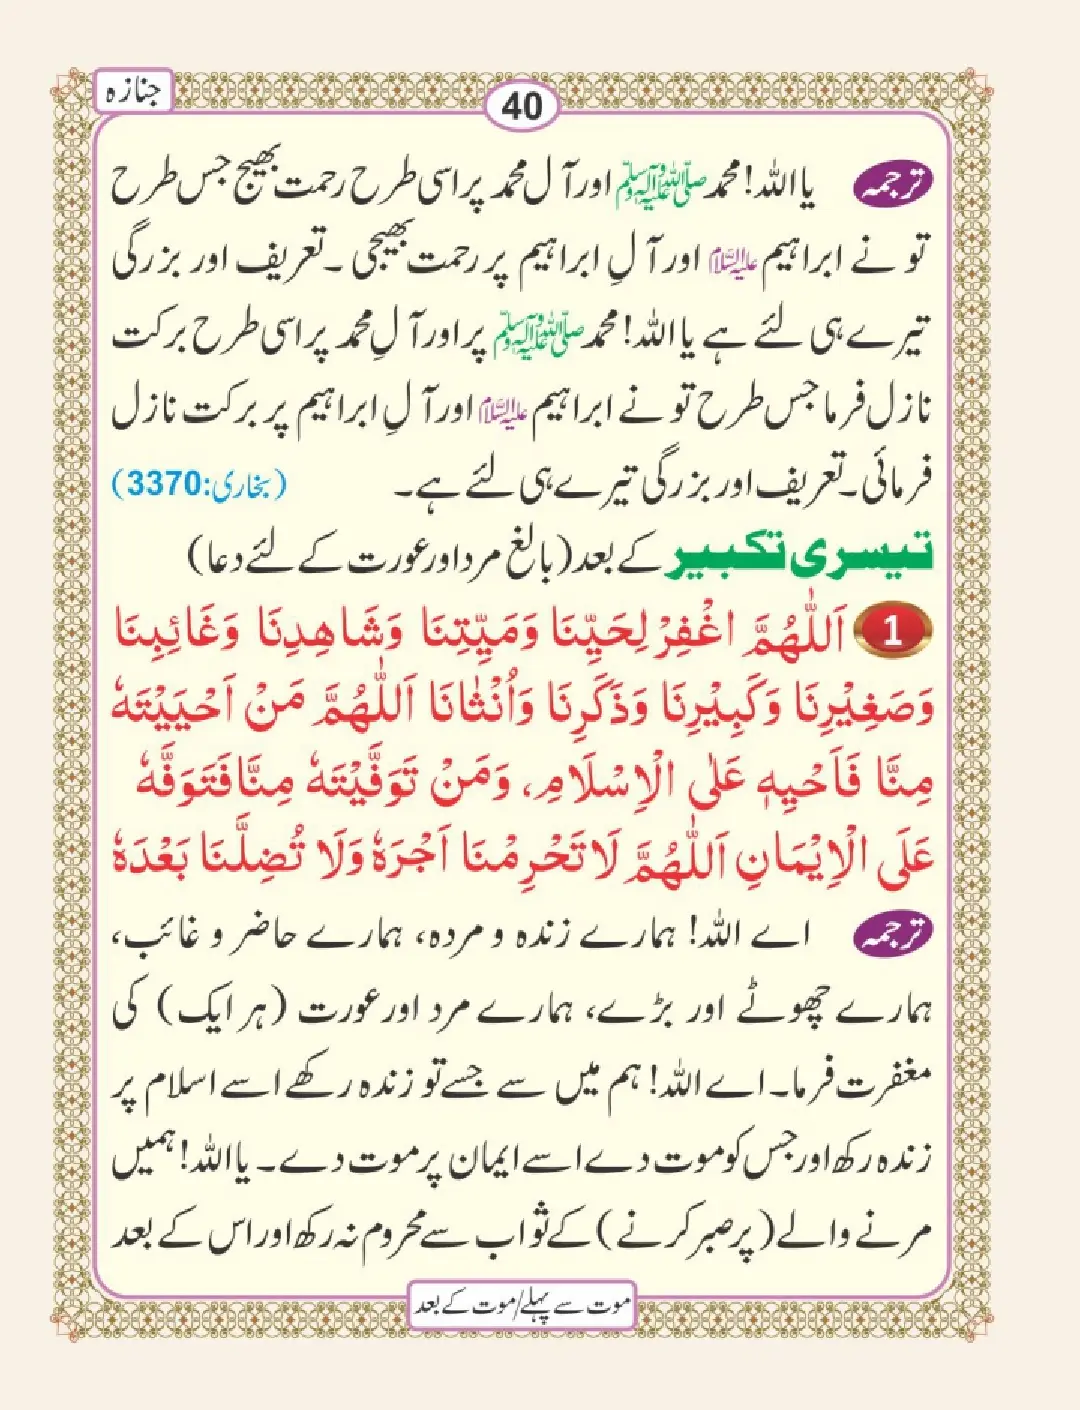 جنازہ
40
ترجمہ یا اللہ! محمد صلی اللہ علیہ وآلہ وسلم اور آل محمد پر اسی طرح رحمت بھیج جس طرح
تو نے ابراہیم علیہ السلام اور آلِ ابراہیم پر رحمت بھیجی ۔ تعریف اور بزرگی
تیرے ہی لئے ہے یا اللہ! محمد صلی اللہ علیہ وآلہ وسلم پر اور آلِ محمد پر اسی طرح برکت
نازل فرما جس طرح تو نے ابراہیم علیہ السلام اور آلِ ابراہیم پر برکت نازل
فرمائی۔ تعریف اور بزرگی تیرے ہی لئے ہے۔ (بخاری:3370)
تیسری تکبیر کے بعد (بالغ مرد اور عورت کے لئے دعا)
1 اَللّٰهُمَّ اغْفِرْ لِحَيِّنَا وَمَيِّتِنَا وَشَاهِدِنَا وَغَائِبِنَا
وَصَغِيْرِنَا وَكَبِيْرِنَا وَذَكَرِنَا وَاُنْثَانَا اَللّٰهُمَّ مَنْ اَحْيَيْتَهٗ
مِنَّا فَاَحْيِهٖ عَلٰى الْاِسْلَامِ، وَمَنْ تَوَفَّيْتَهٗ مِنَّا فَتَوَفَّهٗ
عَلَى الْاِيْمَانِ اَللّٰهُمَّ لَا تَحْرِمْنَا اَجْرَهٗ وَلَا تُضِلَّنَا بَعْدَهٗ
ترجمہ اے اللہ! ہمارے زندہ و مردہ، ہمارے حاضر و غائب،
ہمارے چھوٹے اور بڑے، ہمارے مرد اور عورت (ہر ایک) کی
مغفرت فرما۔ اے اللہ! ہم میں سے جسے تو زندہ رکھے اسے اسلام پر
زندہ رکھ اور جس کو موت دے اسے ایمان پر موت دے۔ یا اللہ! ہمیں
مرنے والے (پر صبر کرنے) کے ثواب سے محروم نہ رکھ اور اس کے بعد
موت سے پہلے/موت کے بعد